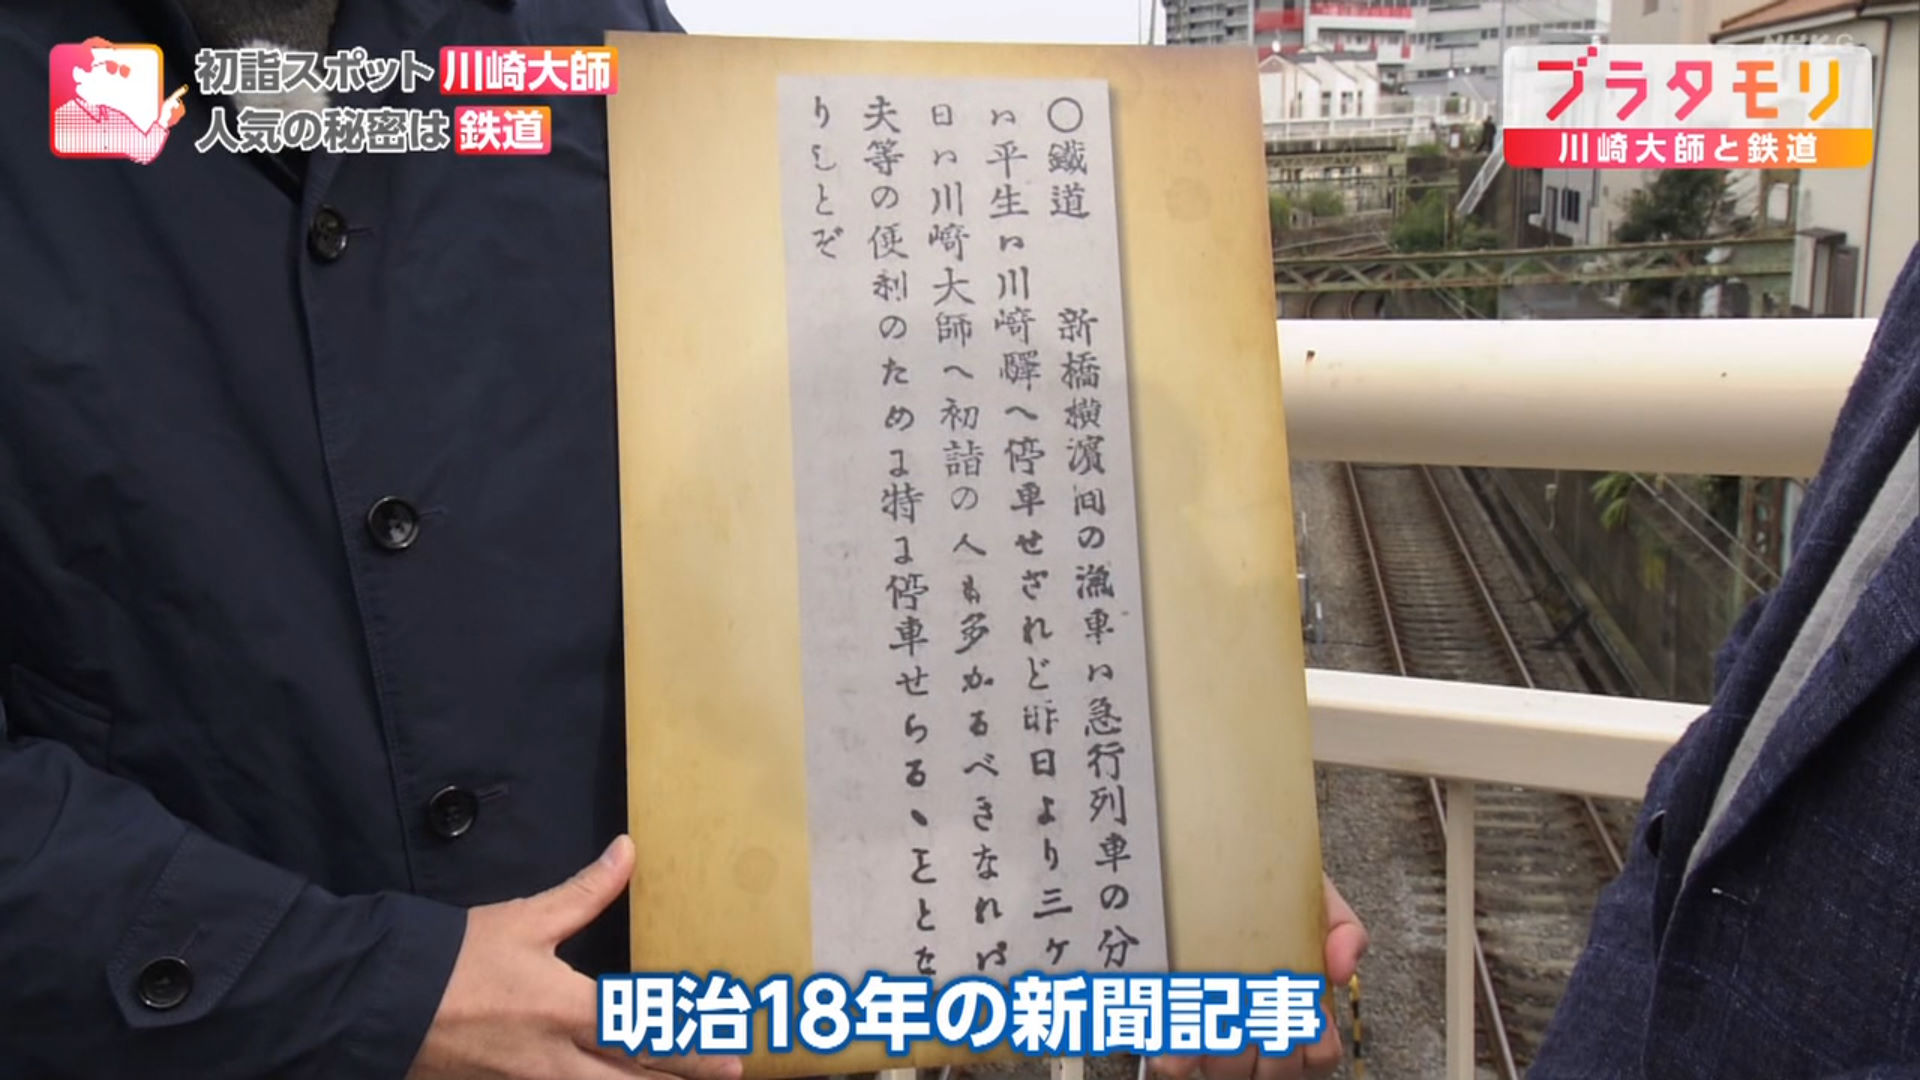 初詣スポット 川崎大師
人気の秘密は 鉄道
ブラタモリ
川崎大師と鉄道
NHK G
〇鐵道 新橋横濱間の滊車ハ急行列車の分
ハ平生ハ川崎驛へ停車せざれど昨日より三ヶ
日ハ川崎大師へ初詣の人も多かるべきなれバ
夫等の便利のために特に停車せらるゝことな
りしとぞ
明治18年の新聞記事